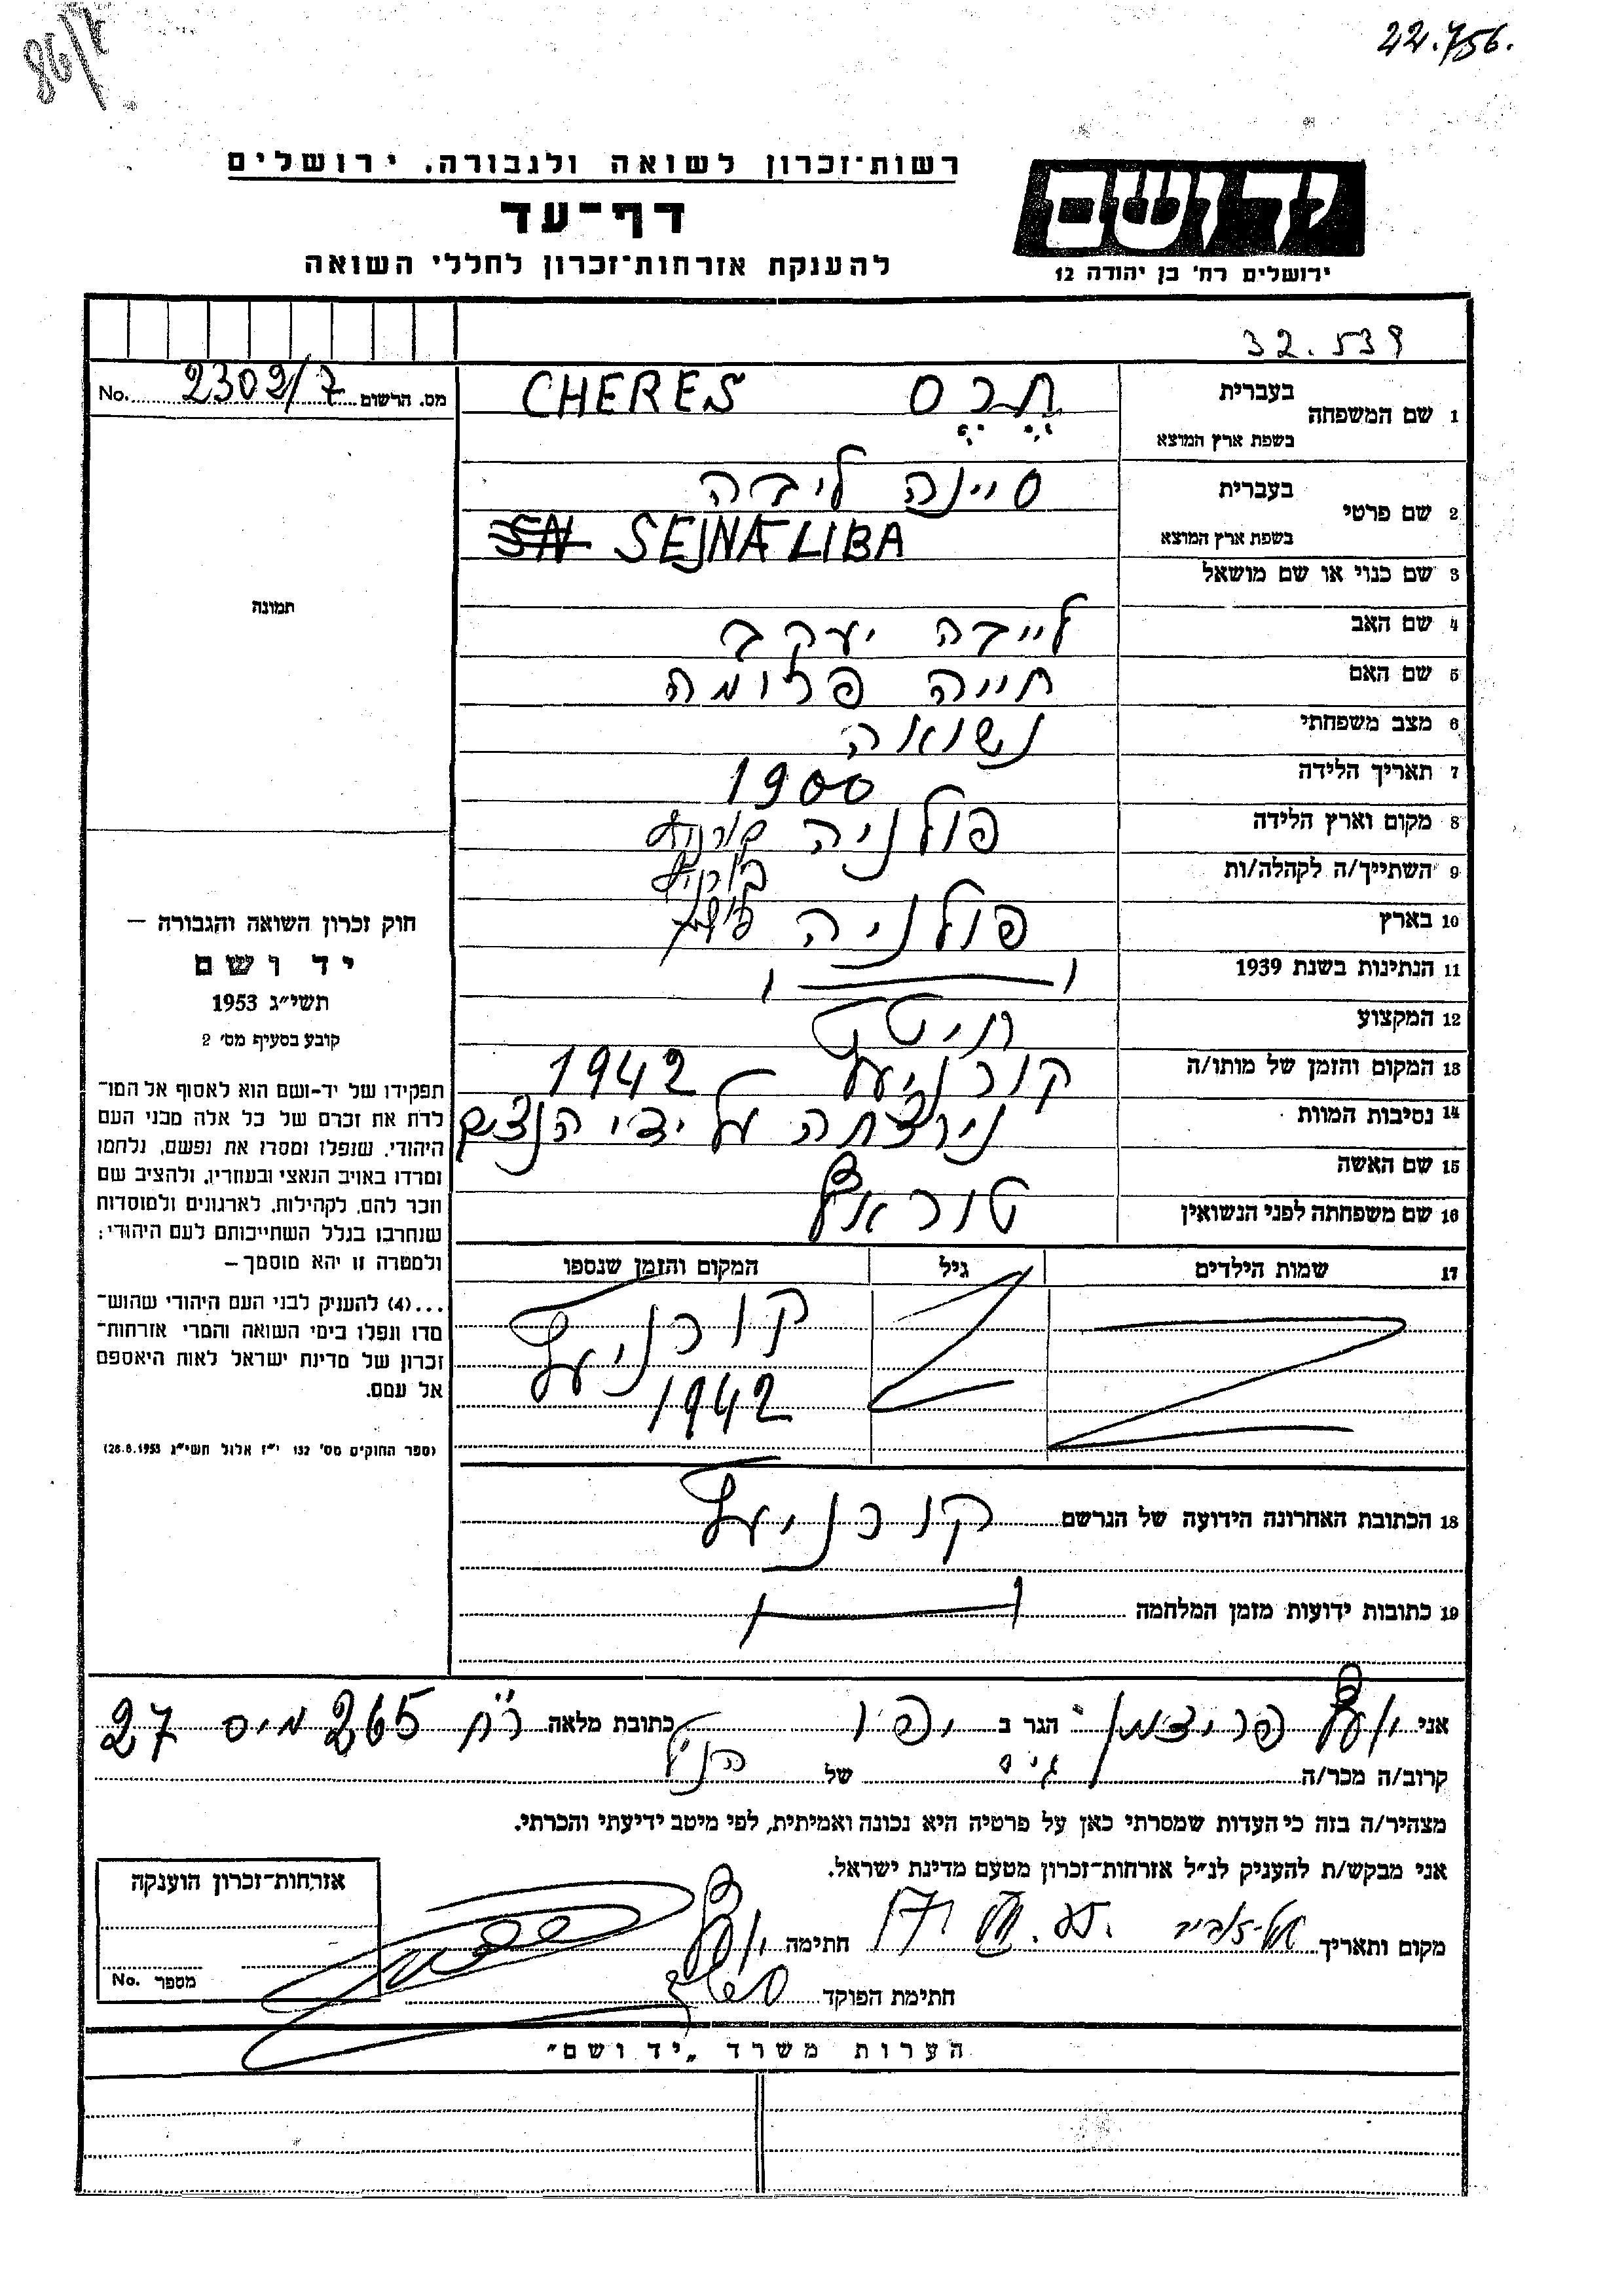 22.756.
86/א
רשות־זכרון לשואה ולגבורה. ירושלים
דף־עד
להענקת אזרחות־זכרון לחללי השואה
יד ושם
ירושלים רח' בן יהודה 12
32.539
מס. הרשום 2302/7 No.
1 שם המשפחה בעברית חרס CHERES
בשפת ארץ המוצא
2 שם פרטי בעברית סיינה ליבה
בשפת ארץ המוצא SEJNA LIBA
3 שם כנוי או שם מושאל
4 שם האב לייבה יעקב
5 שם האם חייה פרומה
6 מצב משפחתי נשואה
7 תאריך הלידה 1900
8 מקום וארץ הלידה פולניה
9 השתייך/ה לקהלה/ות
10 בארץ פולניה
11 הנתינות בשנת 1939 " — "
12 המקצוע
13 המקום והזמן של מותו/ה קורניץ 1942
14 נסיבות המוות נירצחה על ידי הנצים
15 שם האשה
16 שם משפחתה לפני הנשואין
17 שמות הילדים גיל המקום והזמן שנספו
קורניץ
1942
18 הכתובת האחרונה הידועה של הנרשם קורניץ
19 כתובות ידועות מזמן המלחמה
תמונה
חוק זכרון השואה והגבורה —
יד ושם
תשי״ג 1953
קובע בסעיף מס׳ 2
תפקידו של יד-ושם הוא לאסוף אל המו־
לדת את זכרם של כל אלה מבני העם
היהודי, שנפלו ומסרו את נפשם, נלחמו
ומרדו באויב הנאצי ובעוזריו, ולהציב שם
וזכר להם, לקהילות, לארגונים ולמוסדות
שנחרבו בגלל השתייכותם לעם היהודי;
ולמטרה זו יהא מוסמך —
...(4) להעניק לבני העם היהודי שהוש־
מדו ונפלו בימי השואה והמרי אזרחות־
זכרון של מדינת ישראל לאות היאספם
אל עמם.
(ספר החוקים מס׳ 132 י״ז אלול תשי״ג 28.8.1953)
אני פרידמן הגר ב יפו כתובת מלאה רח 265 מיס 27
קרוב/ה מכר/ה גיס של הנ״ל
מצהיר/ה בזה כי העדות שמסרתי כאן על פרטיה היא נכונה ואמיתית, לפי מיטב ידיעתי והכרתי.
אני מבקש/ת להעניק לנ״ל אזרחות־זכרון מטעם מדינת ישראל.
מקום ותאריך תל-אביב חתימה
חתימת הפוקד
אזרחות־זכרון הוענקה
מספר No.
הערות משרד „יד ושם״